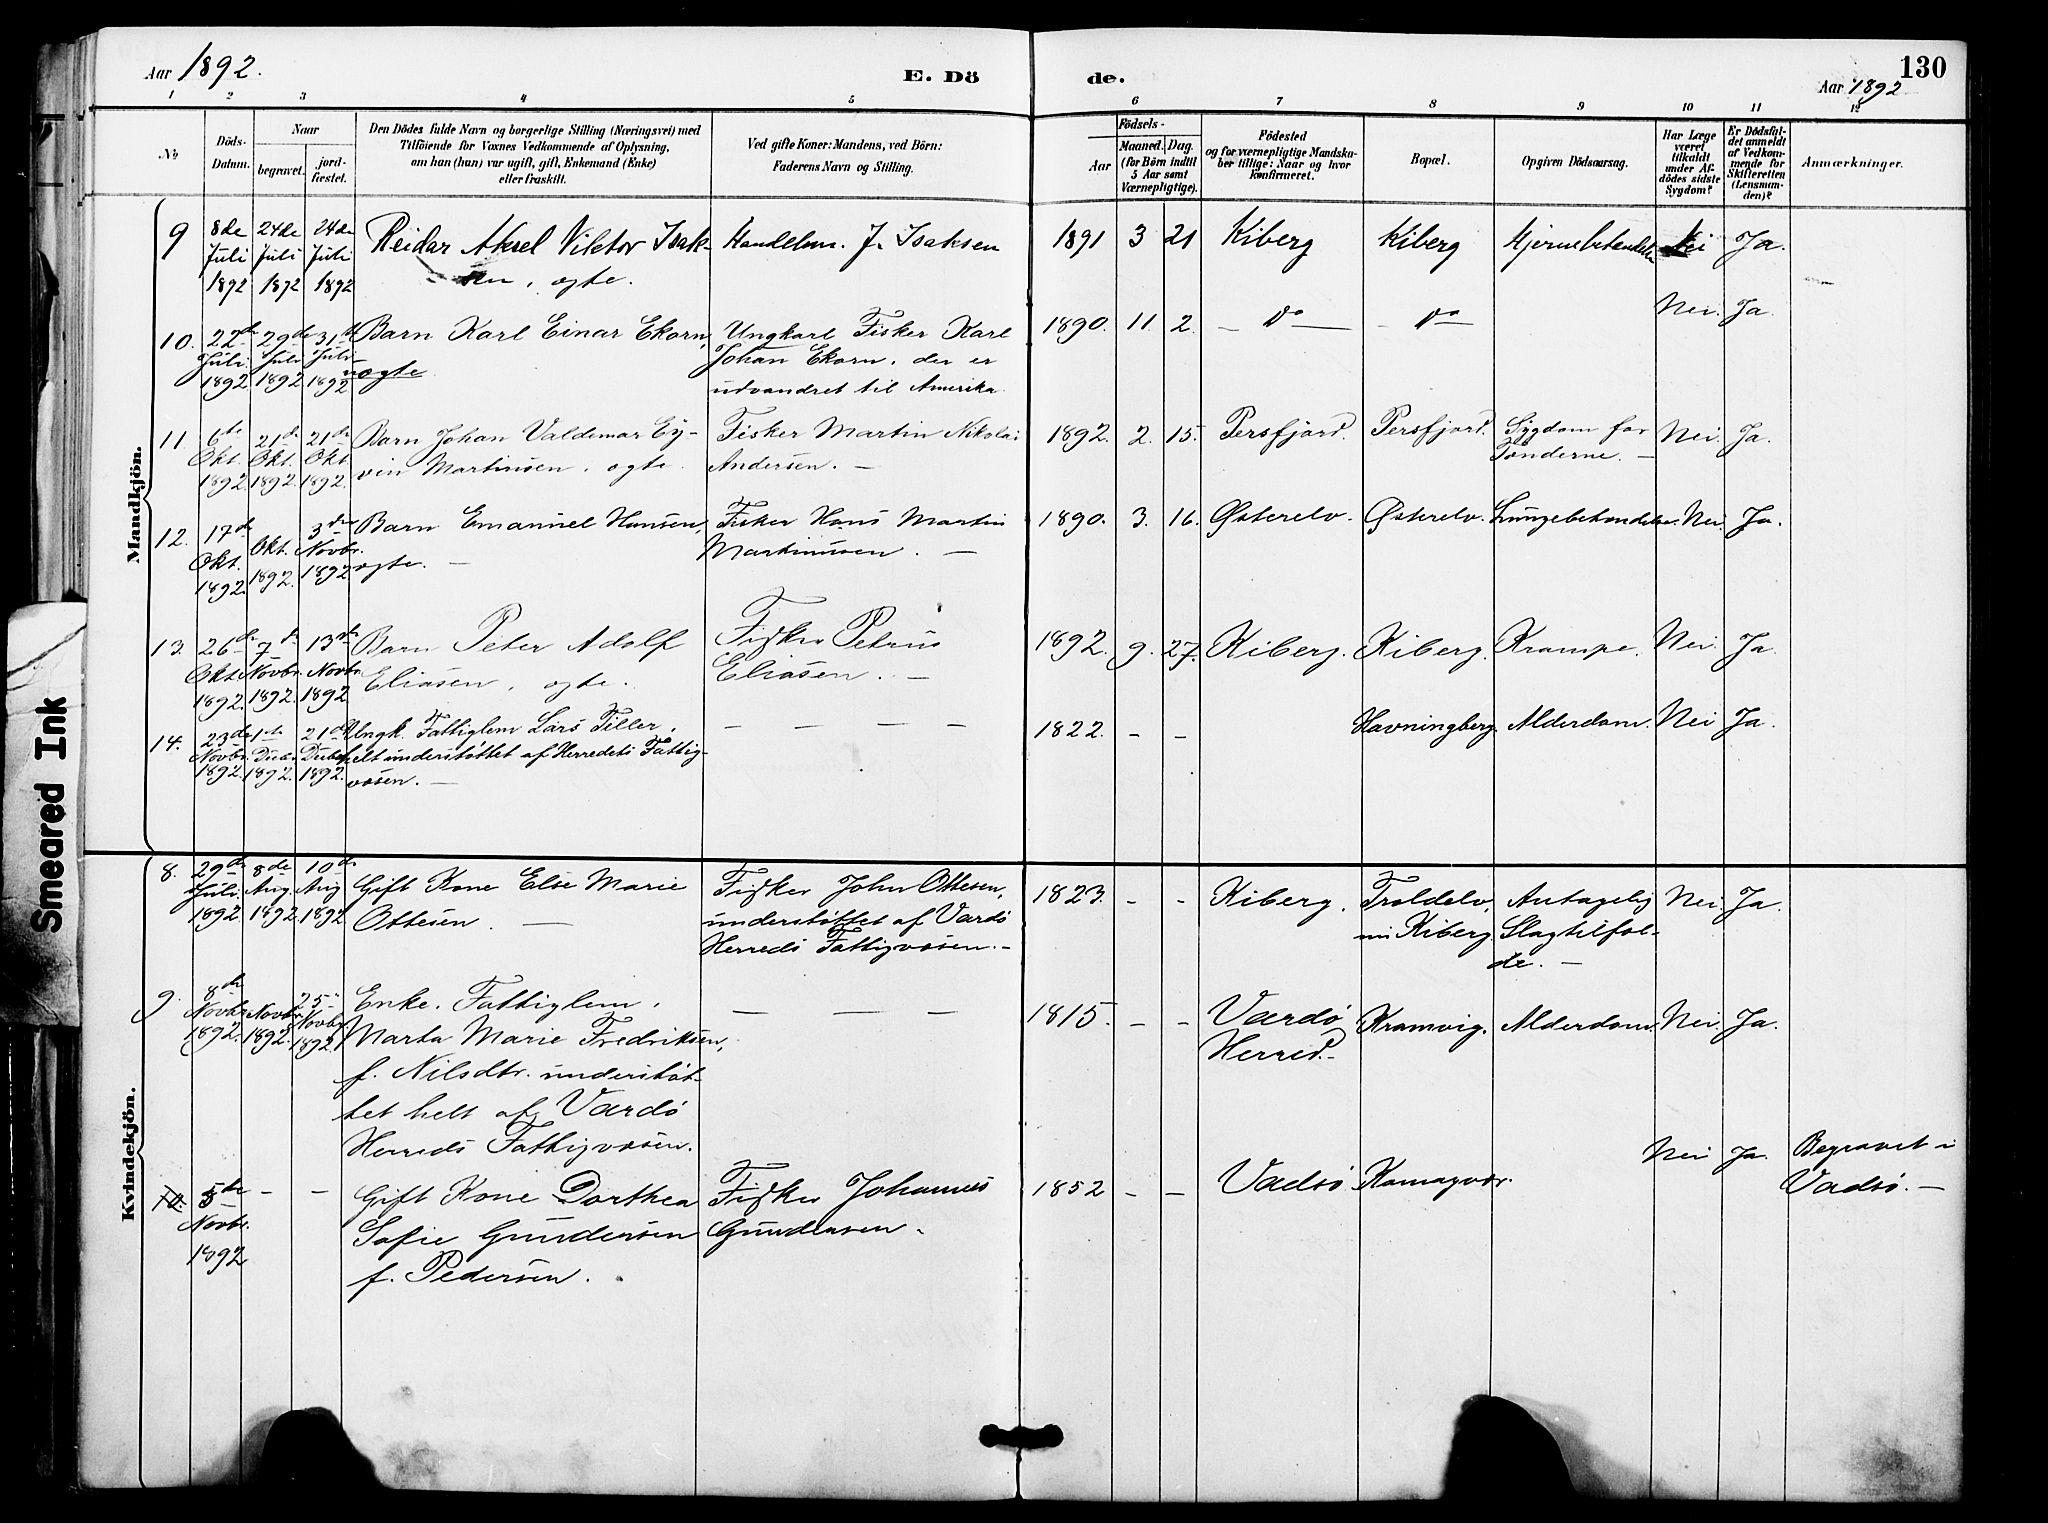 Aar 1892.
E. Dö
de.
130
Aar 1892
1 2 3 4 5 6 7 8 9 10 11 12
No
Döds-
Datum.
Naar
begravet.
jord-
fæstet.
Den Dödes fulde Navn og borgerlige Stilling (Næringsvei) med
Tilföiende for Voxnes Vedkommende af Oplysning,
om han (hun) var ugift, gift, Enkemand (Enke)
eller fraskilt.
Ved gifte Koner: Mandens, ved Börn:
Faderens Navn og Stilling.
Födsels-
Aar
Maaned.
Dag.
(for Börn indtil
5 Aar samt
Værnepligtige).
Födested
og for værnepligtige Mandska-
ber tillige: Naar og hvor
konfirmeret.
Bopæl.
Opgiven Dödsaarsag.
Har Læge
været
tilkaldt
under Af-
dödes sidste
Sygdom?
Er Dödsfal-
det anmeldt
af Vedkom-
mende for
Skifteretten
(Lensman-
den)?
Anmærkninger.
Mandkjön.
9
8de
Juli
1892
24de
Juli
1892
24de
Juli
1892
Reidar Aksel Viktor Isak-
sen, ægte.
Handelsm. J. Isaksen
1891 3 21 Kiberg Kiberg Hjernebetændelse Nei Ja.
10.
22de
Juli
1892
29de
Juli
1892
31te
Juli
1892
Barn Karl Einar Ekorn,
uægte
Ungkarl Fisker Karl
Johan Ekorn, der er
udvandret til Amerika
1890. 11. 2. - do - - do - Nei. Ja.
11.
6te
Okt.
1892.
21de
Okt.
1892.
21de
Okt.
1892.
Barn Johan Valdemar Ey-
vin Martinsen, ægte.
Fisker Martin Nikolai
Andersen. -
1892. 2. 15. Persfjord. Persfjord. Sygdom for
Tænderne. -
Nei Ja.
12.
17de
Okt.
1892.
Okt.
1892.
3die
Novbr.
1892
Barn Emanuel Hansen,
ægte. -
Fisker Hans Martin
Martinusen. -
1890. 3. 16. Østerelv. Østerelv. Lungebetændelse. Nei. Ja.
13.
26de
Okt.
1892.
7de
Novbr.
1892.
13de
Novbr.
1892
Barn Peter Adolf
Eliasen, ægte.
Fisker Petrus
Eliasen. -
1892. 9. 27. Kiberg. Kiberg. Krampe. Nei. Ja.
14.
23de
Novbr.
1892.
1ste
Decbr.
1892.
21de
Decbr.
1892.
Ungk. Fattiglem Lars Tiller,
helt understøttet af Herredets Fattig-
væsen. -
- - - -
1822. - - Havningberg. Alderdom. Nei Ja.
Kvindekjön.
8.
29de
Juli.
1892.
8de
Aug.
1892.
10de
Aug
1892
Gift Kone Else Marie
Ottesen. -
Fisker John Ottesen,
understøttet af Vardø
Herreds Fattigvæsen. -
1823. - - Kiberg. Troldelv,
Kiberg.
Antagelig
Slagtilfæl-
de. -
Nei. Ja.
9.
8de
Novbr.
1892.
Novbr.
1892.
25
Novbr.
1892.
Enke. Fattiglem.
Marta Marie Fredriksen,
f. Nilsdtr. understøt-
tet helt af Vardø
Herreds Fattigvæsen.
- - -
1815. - - Vardø
Herred. -
Kramvig. Alderdom. Nei. Ja.
10.
5de
Novbr.
1892
- -
Gift Kone Dorthea
Sofie Gundersen
f. Pedersen.
Fisker Johannes
Gundersen.
1852 - - Vadsø Komagvær. Nei Ja. Begravet i
Vadsø. -
Smeared Ink